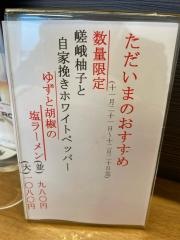 ただいまのおすすめ
数量限定
(十一月二十一日〜十二月二十日迄)
嵯峨柚子と
自家挽きホワイトペッパー
ゆずと胡椒の
塩ラーメン(並) 九八〇円
(大)一〇八〇円